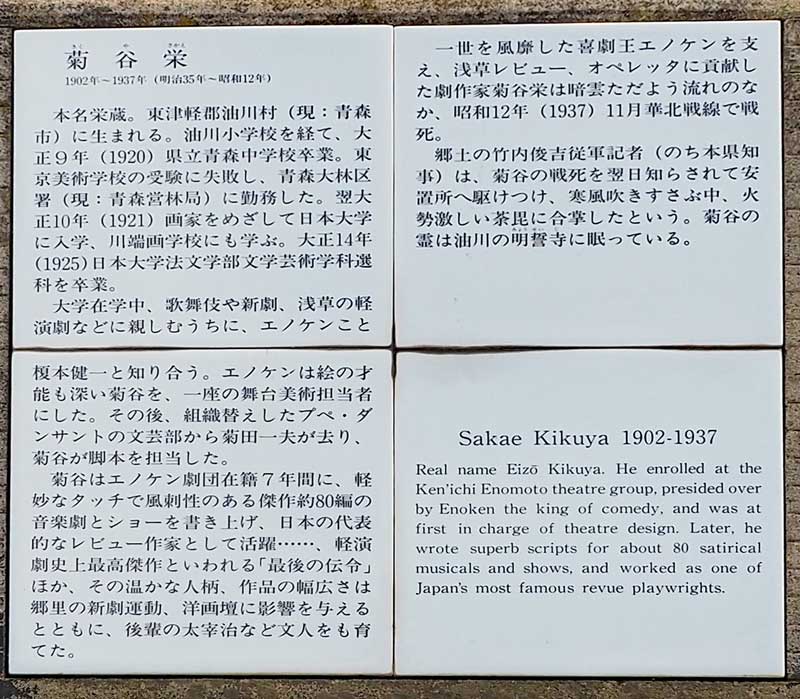 菊谷栄
1902年〜1937年（明治35年〜昭和12年）
本名栄蔵。東津軽郡油川村（現：青森
市）に生まれる。油川小学校を経て、大
正９年（1920）県立青森中学校卒業。東
京美術学校の受験に失敗し、青森大林区
署（現：青森営林局）に勤務した。翌大
正10年（1921）画家をめざして日本大学
に入学、川端画学校にも学ぶ。大正14年
(1925)日本大学法文学部文学芸術学科選
科を卒業。
大学在学中、歌舞伎や新劇、浅草の軽
演劇などに親しむうちに、エノケンこと
榎本健一と知り合う。エノケンは絵の才
能も深い菊谷を、一座の舞台美術担当者
にした。その後、組織替えしたプペ・ダ
ンサントの文芸部から菊田一夫が去り、
菊谷が脚本を担当した。
菊谷はエノケン劇団在籍７年間に、軽
妙なタッチで風刺性のある傑作約80編の
音楽劇とショーを書き上げ、日本の代表
的なレビュー作家として活躍……、軽演
劇史上最高傑作といわれる「最後の伝令」
ほか、その温かな人柄、作品の幅広さは
郷里の新劇運動、洋画壇に影響を与える
とともに、後輩の太宰治など文人をも育
てた。
一世を風靡した喜劇王エノケンを支
え、浅草レビュー、オペレッタに貢献し
た劇作家菊谷栄は暗雲ただよう流れのな
か、昭和12年（1937）11月華北戦線で戦
死。
郷土の竹内俊吉従軍記者（のち本県知
事）は、菊谷の戦死を翌日知らされて安
置所へ駆けつけ、寒風吹きすさぶ中、火
勢激しい荼毘に合掌したという。菊谷の
霊は油川の明誓寺に眠っている。
Sakae Kikuya 1902-1937
Real name Eizō Kikuya. He enrolled at the
Ken'ichi Enomoto theatre group, presided over
by Enoken the king of comedy, and was at
first in charge of theatre design. Later, he
wrote superb scripts for about 80 satirical
musicals and shows, and worked as one of
Japan's most famous revue playwrights.